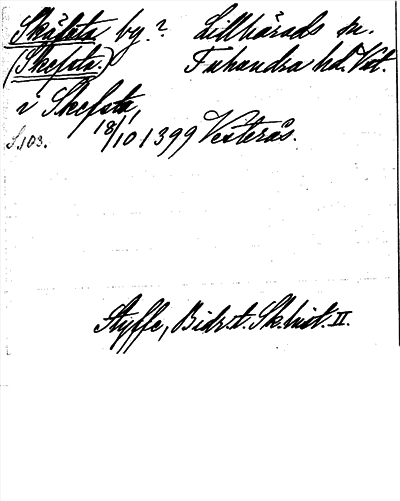 Skäfsta by? Lillhärads sn.
(Skefsta.) Tuhundra hd. Vstm.
i Skefsta,
S. 103. 18/10 1399 Vesterås.
Styffe, Bidr. t. Sk. hist. II.